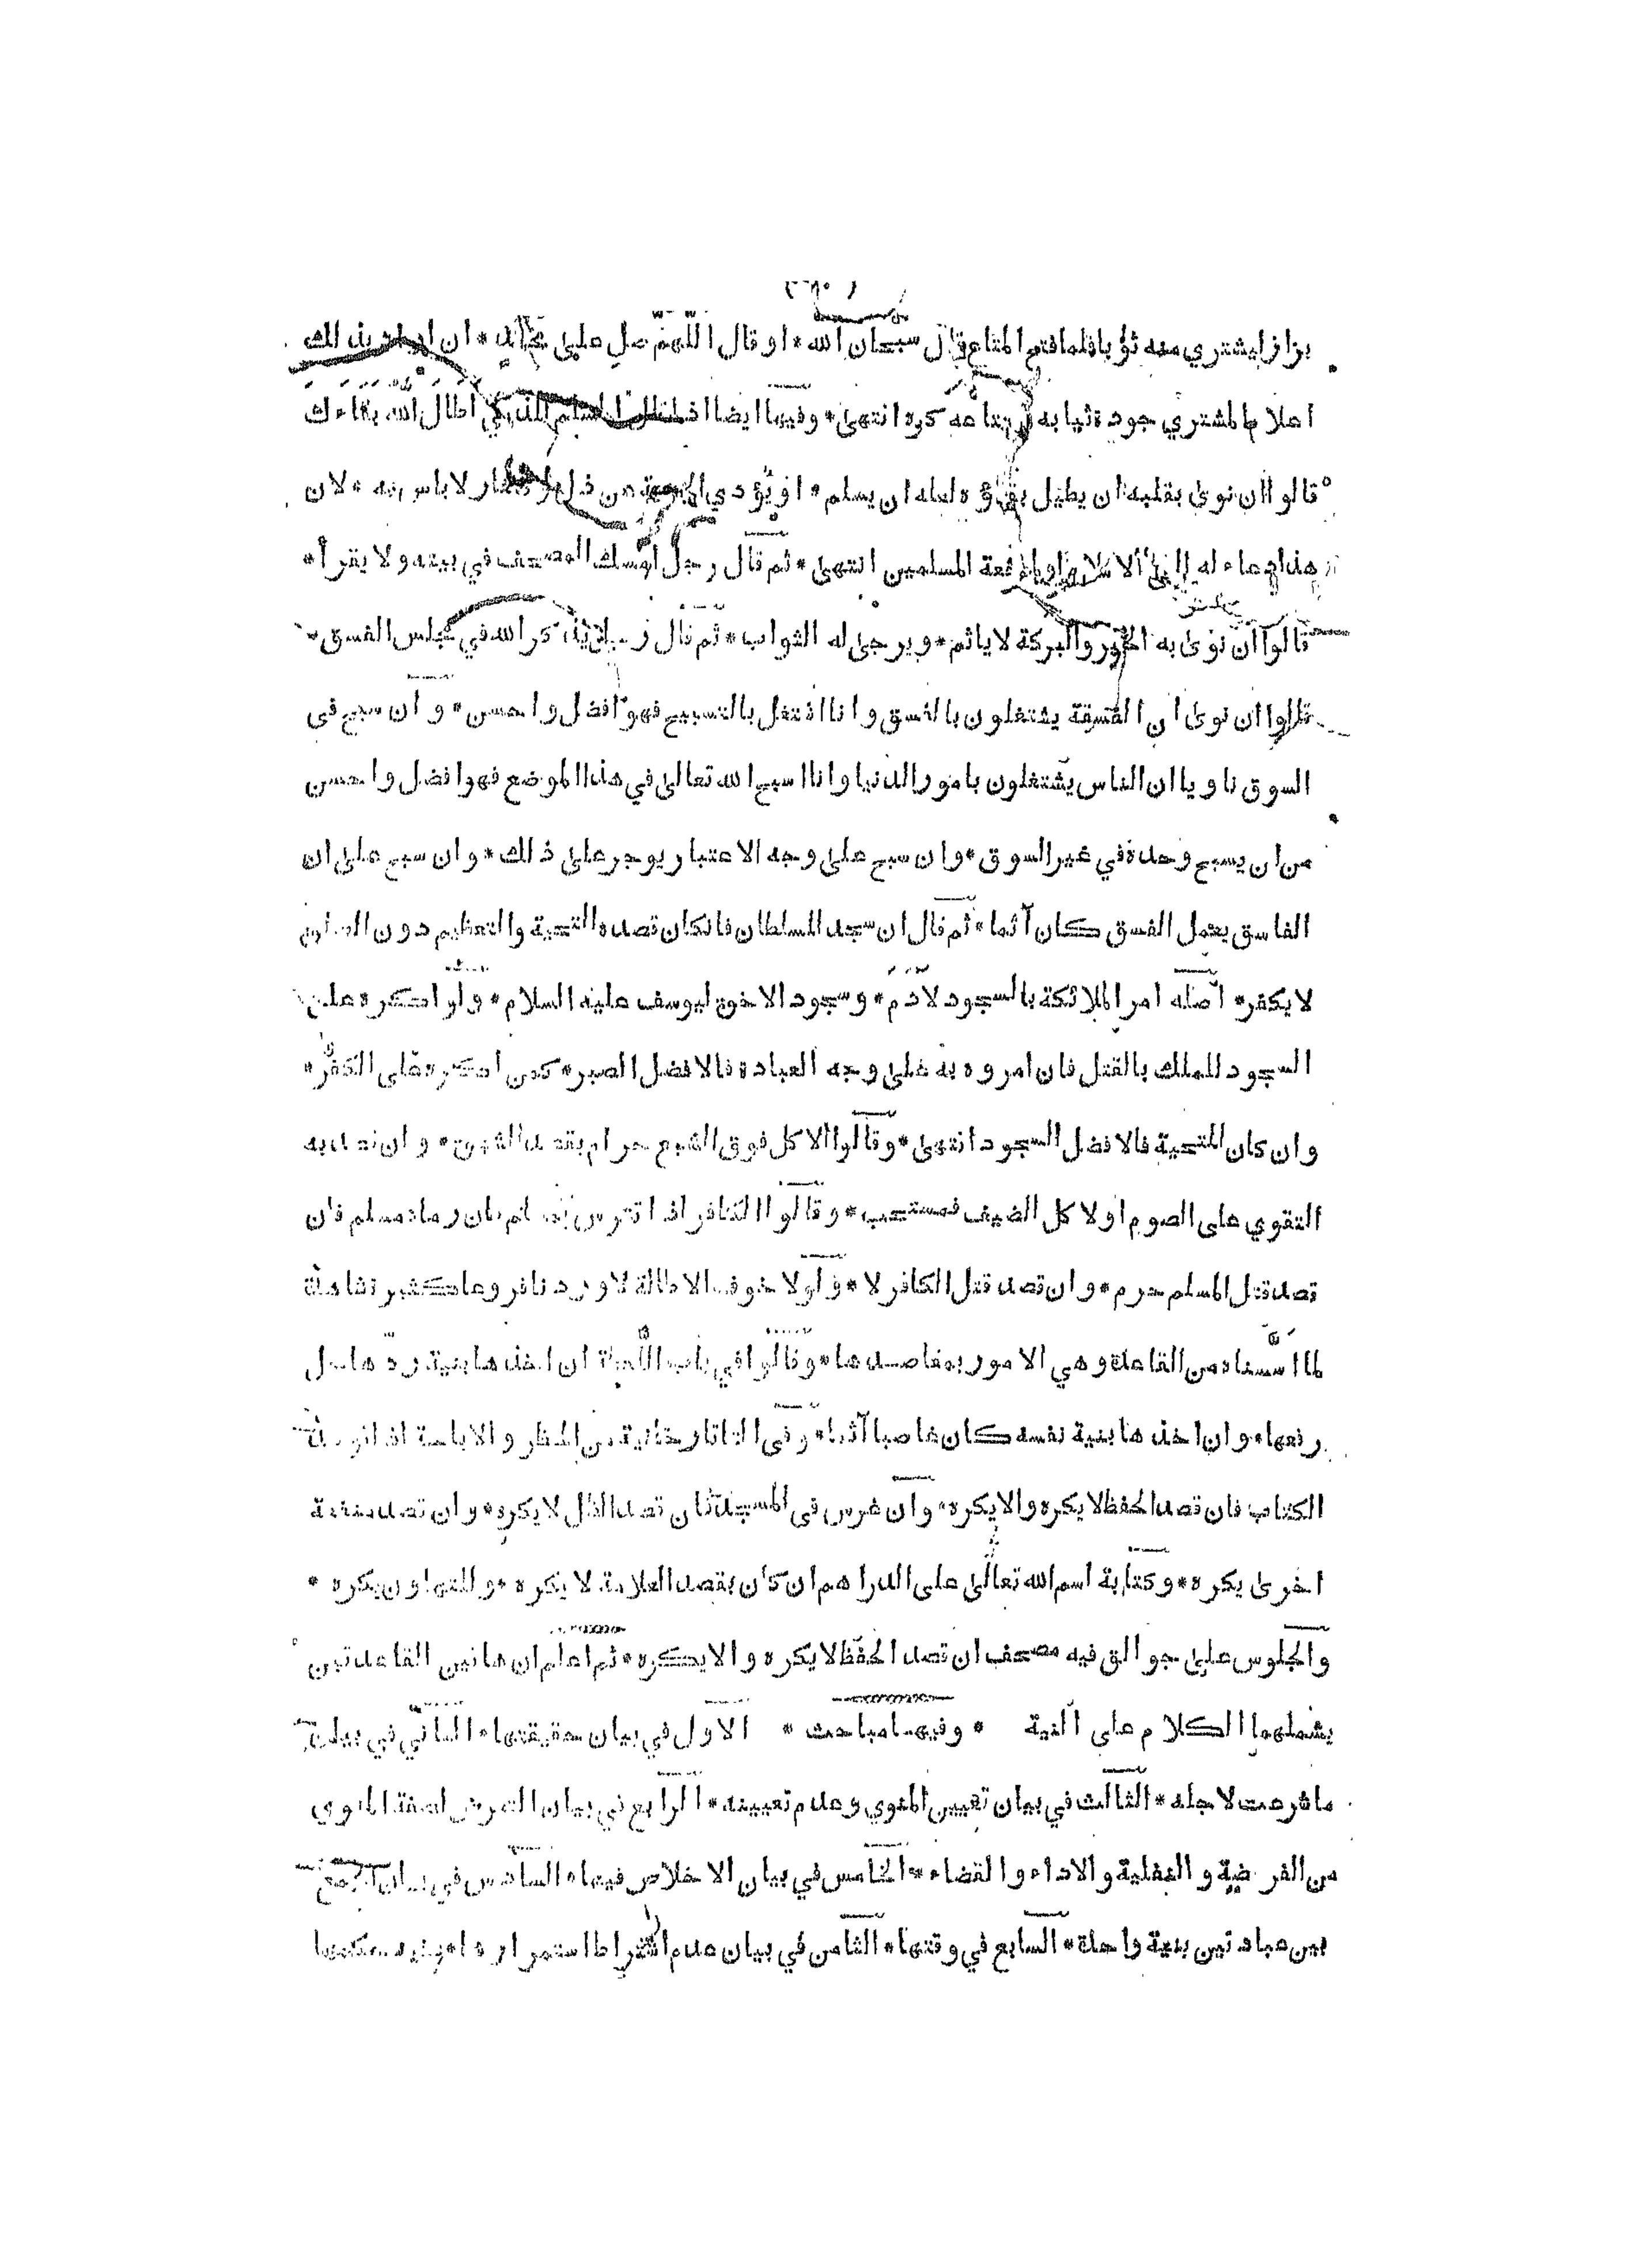 بزازا ليشتري منه ثوبا فلما فتح المتاع قال سبحان الله * او قال اللهم صل على محمد * ان اراد بذلك
اعلام المشتري جودة ثيابه كره انتهى * وفيها ايضا اذا قال المسلم للذمي اطال الله بقاءك
قالوا ان نوى بقلبه ان يطيل بقاؤه لعله ان يسلم * او يؤدي الجزية عن ذل وصغار لا باس به * لان
هذا دعاء له الى الاسلام او لمنفعة المسلمين انتهى * ثم قال رجل امسك المصحف في بيته ولا يقرأ *
قالوا ان نوى به الخير والبركة لا ياثم * ويرجى له الثواب * ثم قال رجل يذكر الله في مجلس الفسق
قالوا ان نوى ان الفسقة يشتغلون بالفسق وانا اشتغل بالتسبيح فهو افضل واحسن * وان سبح في
السوق ناويا ان الناس يشتغلون بامور الدنيا وانا اسبح الله تعالى في هذا الموضع فهو افضل واحسن
من ان يسبح وحده في غير السوق * وان سبح على وجه الاعتبار يوجر على ذلك * وان سبح على ان
الفاسق يعمل الفسق كان آثما * ثم قال ان سجد للسلطان فانكان قصده التحية والتعظيم دون الصلوة
لا يكفر * اصله امر الملائكة بالسجود لآدم * وسجود الاخوة ليوسف عليه السلام * ولو اكره على
السجود للملك بالقتل فان امروه به على وجه العبادة فالافضل الصبر * كمن اكره على الكفر *
وان كان للتحية فالافضل السجود انتهى * وقالوا الاكل فوق الشبع حرام بقصد الشهوة * وان قصد به
التقوي على الصوم او لاكل الضيف فمستحب * وقالوا الكافر اذا تترس بمسلم فان رماه مسلم فان
قصد قتل المسلم حرم * وان قصد قتل الكافر لا * ولولا خوف الاطالة لاوردنا فروعا كثيرة شاهدة
لما اسسناه من القاعدة وهي الامور بمقاصدها * وقالوا في باب اللقطة ان اخذها بنية ردها حل
رفعها * وان اخذها بنية نفسه كان غاصبا آثما * وفي التاتارخانية من الحظر والاباحة اذا توسد
الكتاب فان قصد الحفظ لا يكره والا يكره * وان غرس في المسجد فان قصد الظل لا يكره * وان قصد منفعة
اخرى يكره * وكتابة اسم الله تعالى على الدراهم ان كان بقصد العلامة لا يكره * وللتهاون يكره *
والجلوس على جوالق فيه مصحف ان قصد الحفظ لا يكره والا يكره * ثم اعلم ان هاتين القاعدتين
يشملهما الكلام على النية * وفيها مباحث * الاول في بيان حقيقتها * الثاني في بيان
ما شرعت لاجله * الثالث في بيان تعيين المنوي وعدم تعيينه * الرابع في بيان التعرض لصفة المنوي
من الفرضية والنفلية والاداء والقضاء * الخامس في بيان الاخلاص فيها * السادس في بيان الجمع
بين عبادتين بنية واحدة * السابع في وقتها * الثامن في بيان عدم اشتراط استمرارها